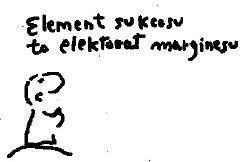 Element sukcesu
to elektorat marginesu